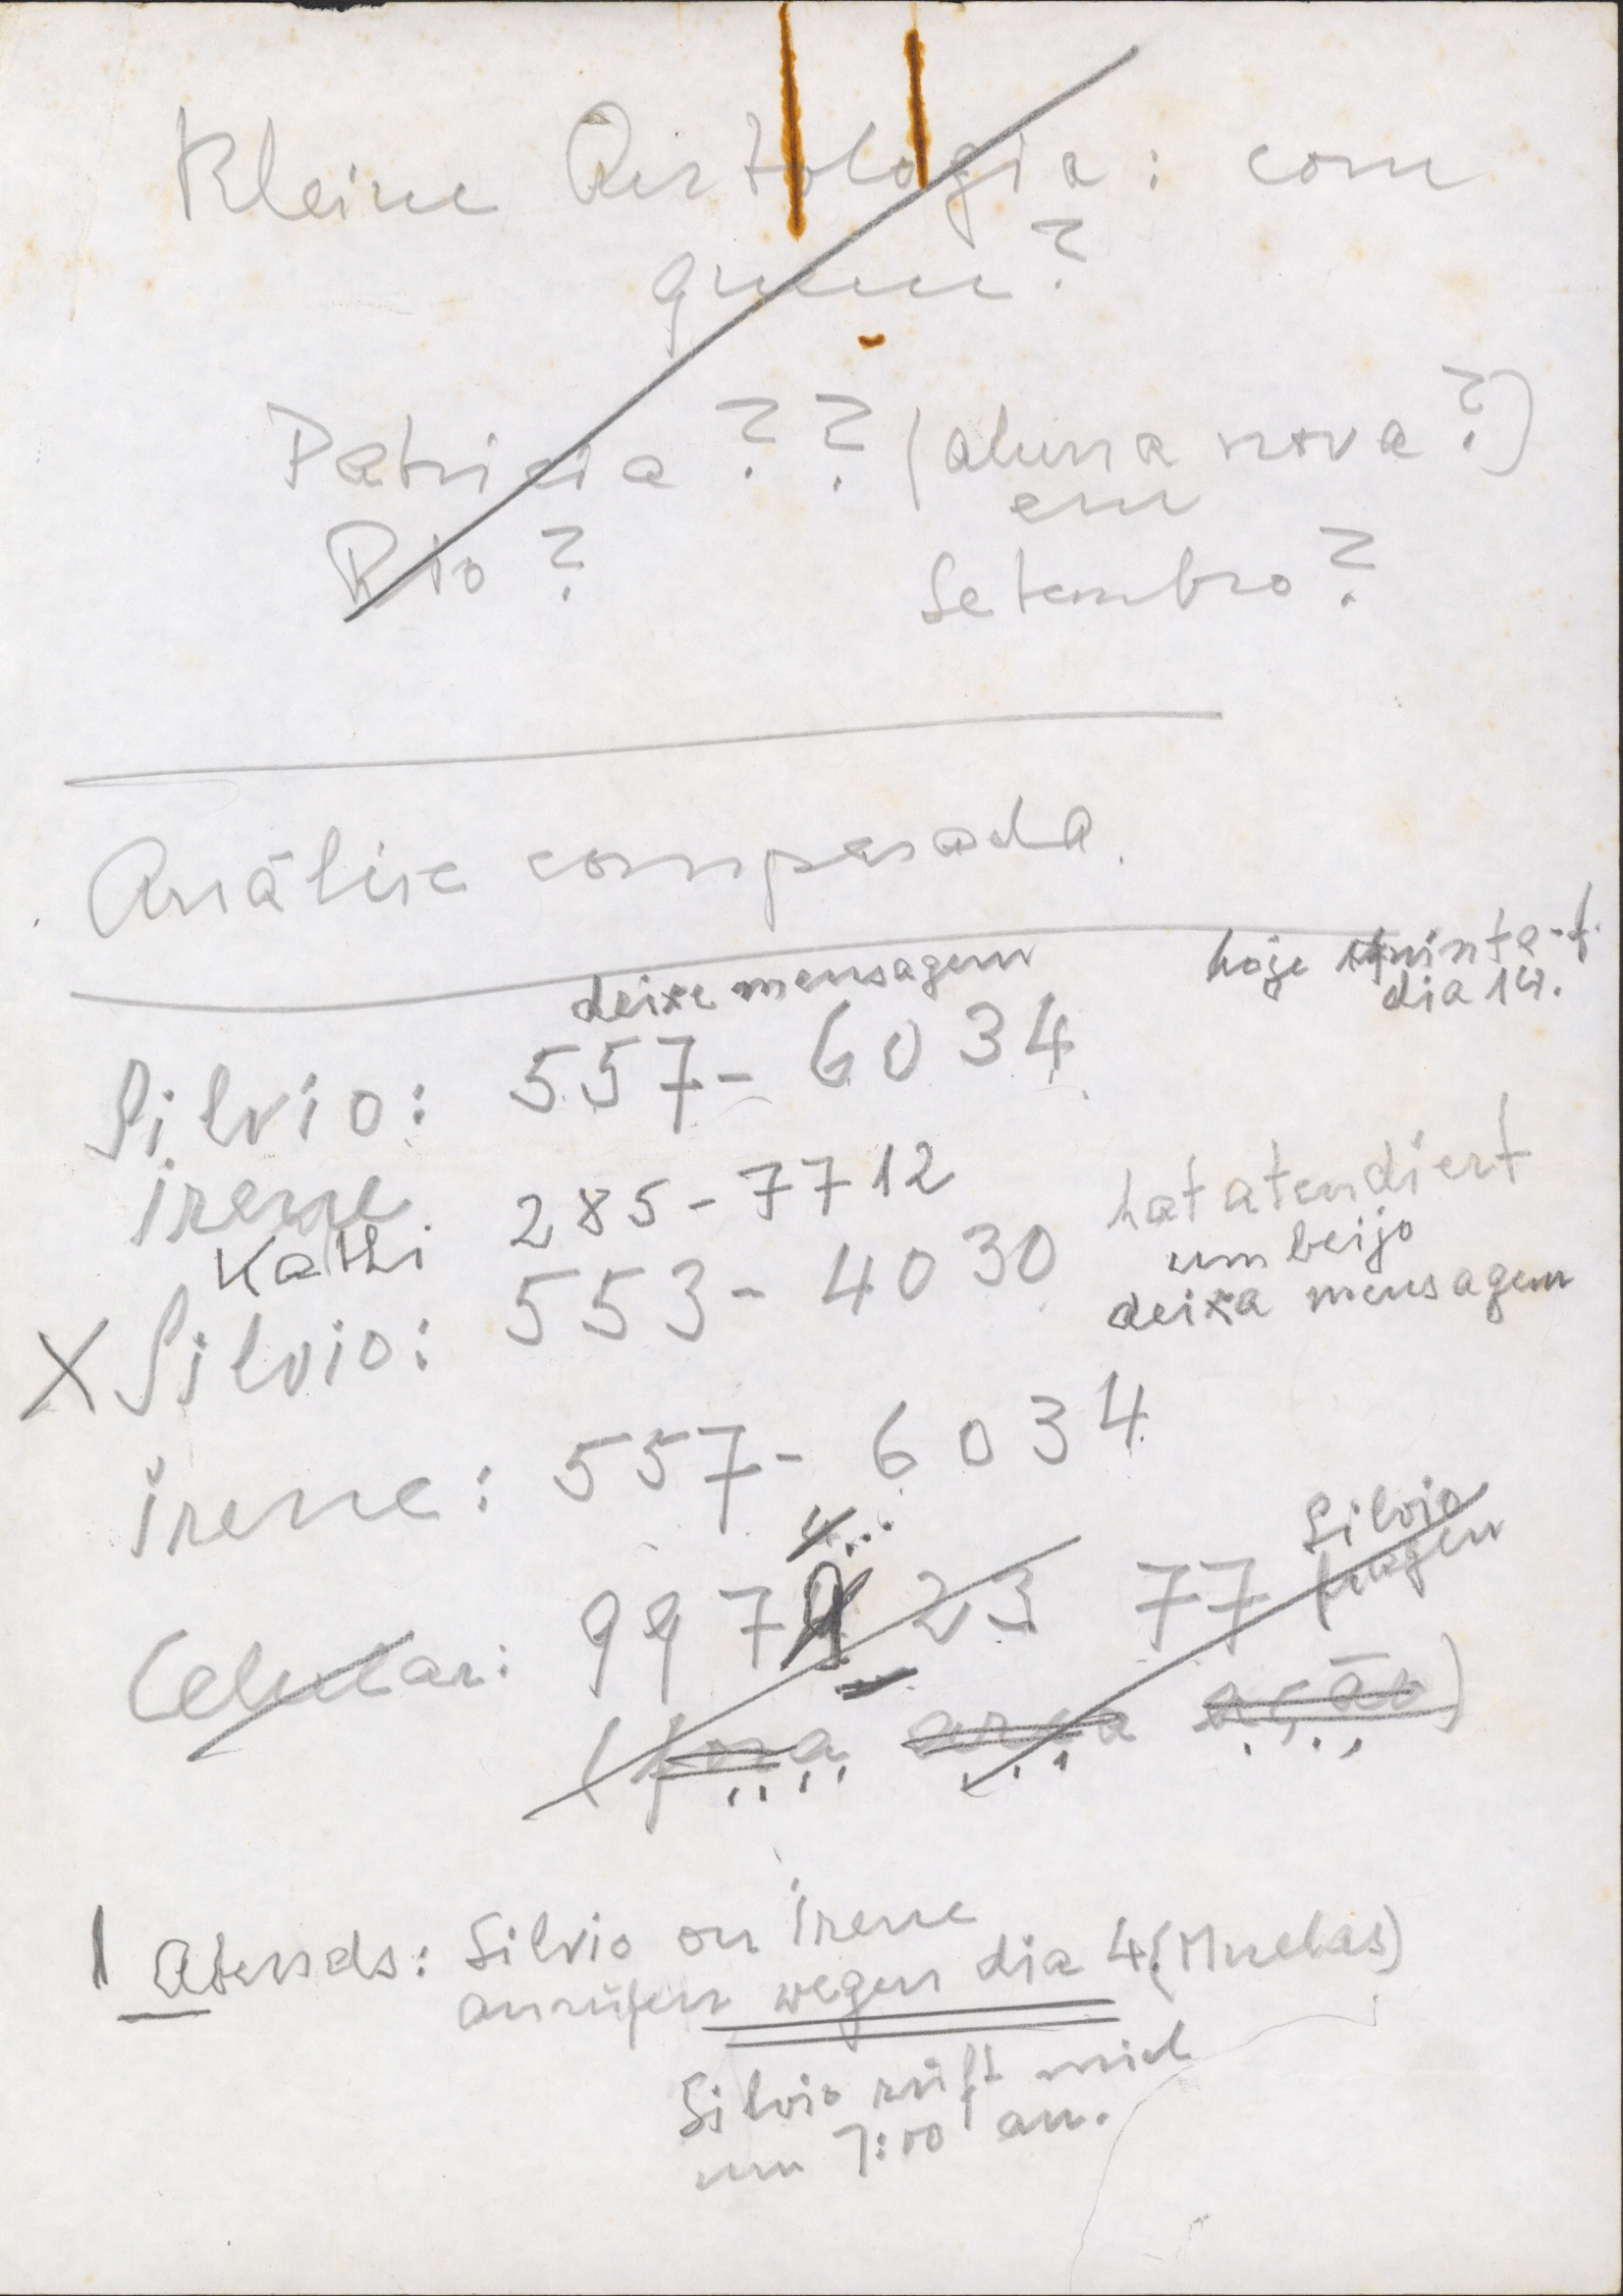 Kleine Antologia: com
quem?
Patricia ?? (aluna nova?)
em
Rio? Setembro?
Análise comparada.
deixe mensagem hoje quinta-f.
dia 14.
Silvio: 557-6034
irene 285-7712
Kathi
hat atendiert
um beijo
deixa mensagem
X Silvio: 553-4030
irene: 557-6034
Silvio
fragen
Celular: 997 23 77
(fora area ação)
Abends: Silvio ou irene
anrufen wegen dia 4 (Muchas)
Silvio ruft mich
um 7:00 an.